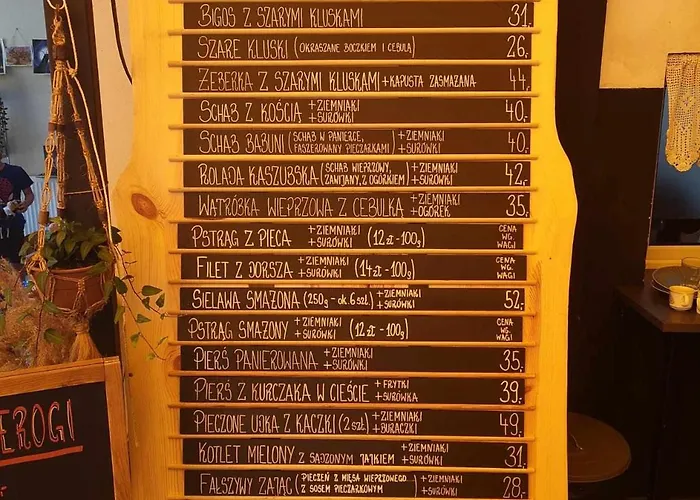 BIGOS Z SZARYMI KLUSKAMI 31,-
SZARE KLUSKI (OKRASZANE BOCZKIEM I CEBULĄ) 26,-
ŻEBERKA Z SZARYMI KLUSKAMI +KAPUSTA ZASMAŻANA 44,-
SCHAB Z KOŚCIĄ +ZIEMNIAKI +SURÓWKI 40,-
SCHAB BABUNI (SCHAB W PANIERCE, FASZEROWANY PIECZARKAMI) +ZIEMNIAKI +SURÓWKI 40,-
ROLADA KASZUBSKA (SCHAB WIEPRZOWY, ZAWIJANY, Z OGÓRKIEM) +ZIEMNIAKI +SURÓWKI 42,-
WĄTRÓBKA WIEPRZOWA Z CEBULKĄ +ZIEMNIAKI +OGÓREK 35,-
PSTRĄG Z PIECA +ZIEMNIAKI +SURÓWKI (12 zł - 100g) CENA WG. WAGI
FILET Z DORSZA +ZIEMNIAKI +SURÓWKI (14 zł - 100g) CENA WG. WAGI
SIELAWA SMAŻONA (250g - ok. 6 szt.) +ZIEMNIAKI +SURÓWKI 52,-
PSTRĄG SMAŻONY +ZIEMNIAKI +SURÓWKI (12 zł - 100g) CENA WG. WAGI
PIERŚ PANIEROWANA +ZIEMNIAKI +SURÓWKI 35,-
PIERŚ Z KURCZAKA W CIEŚCIE +FRYTKI +SURÓWKA 39,-
PIECZONE UDKA Z KACZKI (2 szt.) +ZIEMNIAKI +BURACZKI 49,-
KOTLET MIELONY Z SADZONYM JAJKIEM +ZIEMNIAKI +SURÓWKI 31,-
FAŁSZYWY ZAJĄC (PIECZEŃ Z MIĘSA WIEPRZOWEGO Z SOSEM PIECZARKOWYM) +ZIEMNIAKI +SURÓWKI 28,-
EROGI